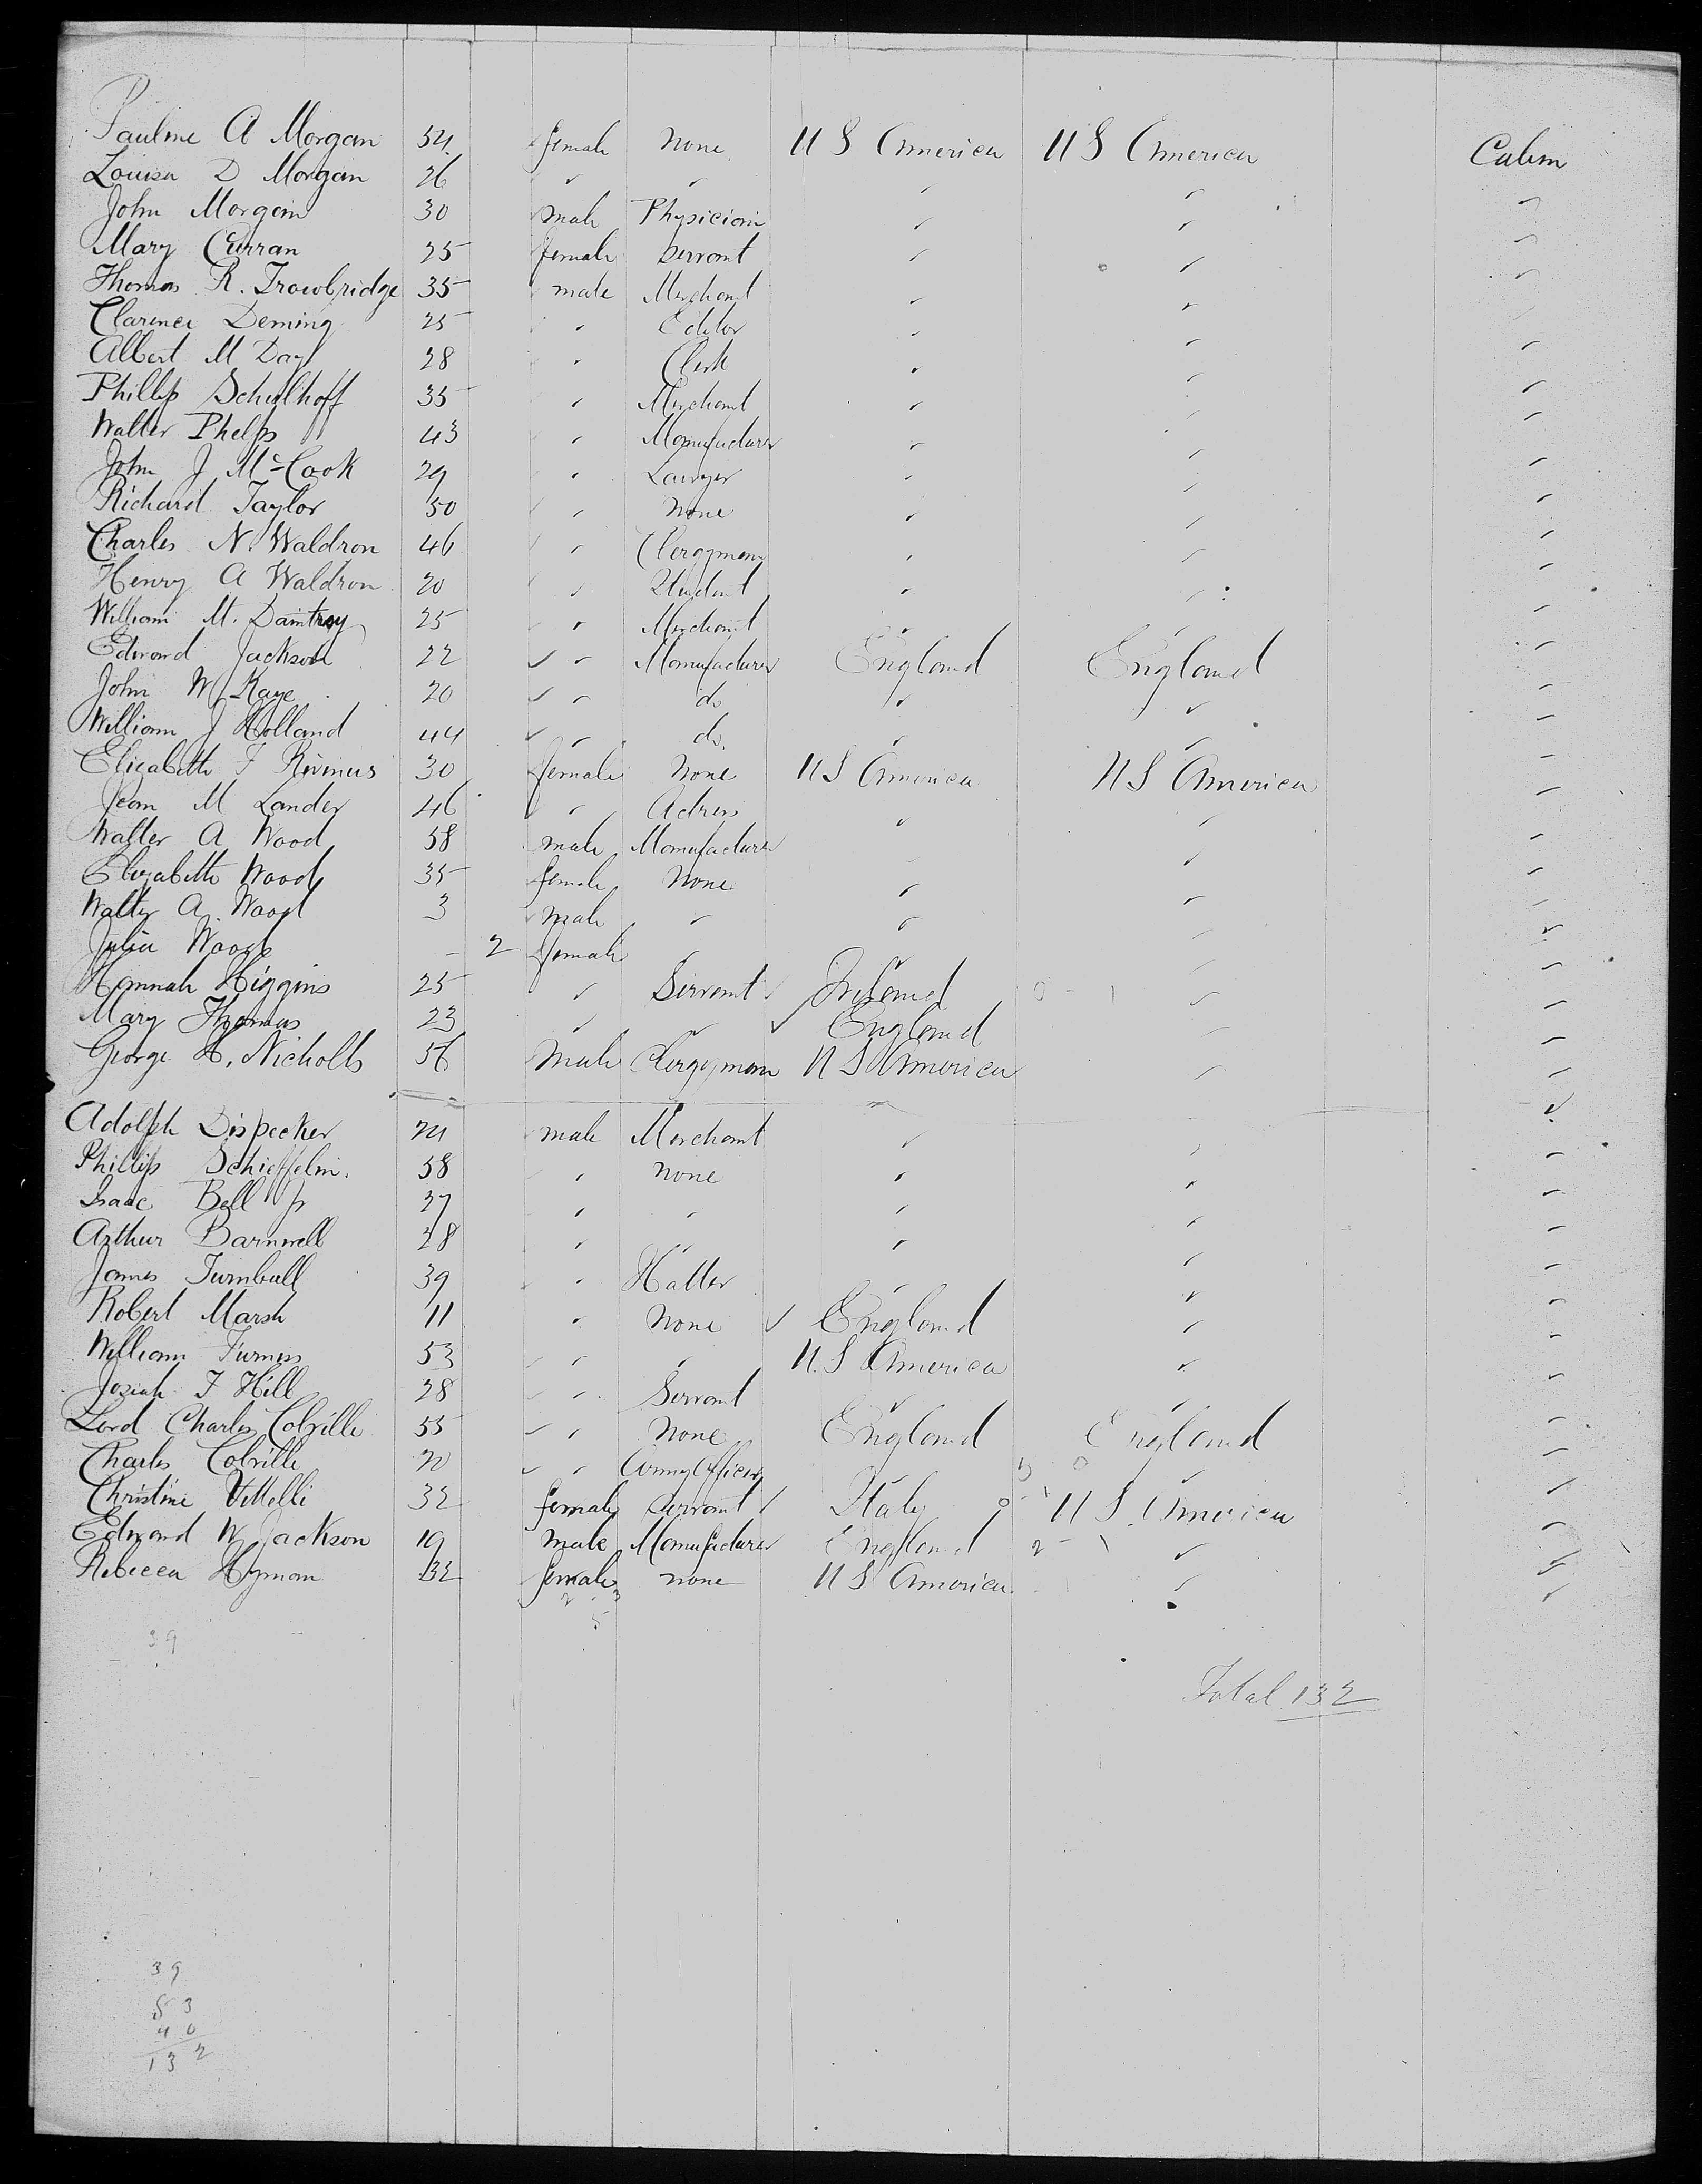 Pauline A Morgan 54 female None U S America U S America Cabin
Louisa D Morgan 26 " " " " "
John Morgan 30 male Physician " " "
Mary Curran 25 female Servant " " "
Thomas R. Trowbridge 35 male Merchant " " "
Clarence Deming 25 " Editor " " "
Albert M Day 28 " Clerk " " "
Phillip Schulhoff 35 " Merchant " " "
Walter Phelps 43 " Manufacturer " " "
John J McCook 29 " Lawyer " " "
Richard Taylor 50 " None " " "
Charles N Waldron 46 " Clergyman " " "
Henry A Waldron 20 " Student " " "
William M. Daintrey 25 " Merchant " " "
Edward Jackson 22 " Manufacturer England England "
John W Kaye 20 " do " " "
William J Holland 44 " do. " " "
Elizabeth F Rivinus 30 female None U S America U S America "
Jean M Lander 46 " Actress " " "
Walter A Wood 58 male Manufacturer " " "
Elizabeth Wood 35 female None " " "
Walter A Wood 3 male " " " "
Julia Wood - 2 female " " " "
Hannah Higgins 25 " Servant Ireland " "
Mary Thomas 23 " " England " "
George H. Nicholls 56 Male Clergyman U S America " "
Adolph Dispecker 24 male Merchant " " "
Phillip Schieffelin. 58 " None " " "
Isaac Bell Jr 27 " " " " "
Arthur Barnwell 28 " " " " "
James Turnbull 39 " Hatter " " "
Robert Marsh 11 " None England " "
William Furness 53 " " U.S America " "
Josiah F Hill 28 " Servant " " "
Lord Charles Colville 55 " None England England "
Charles Colville 20 " Army Officer " " "
Christine Vittelli 32 female Servant Italy U S America "
Edward W Jackson 19 male Manufacturer England " "
Rebecca Hyman 32 female none U S America " "
39
Total 132
39
53
40
132